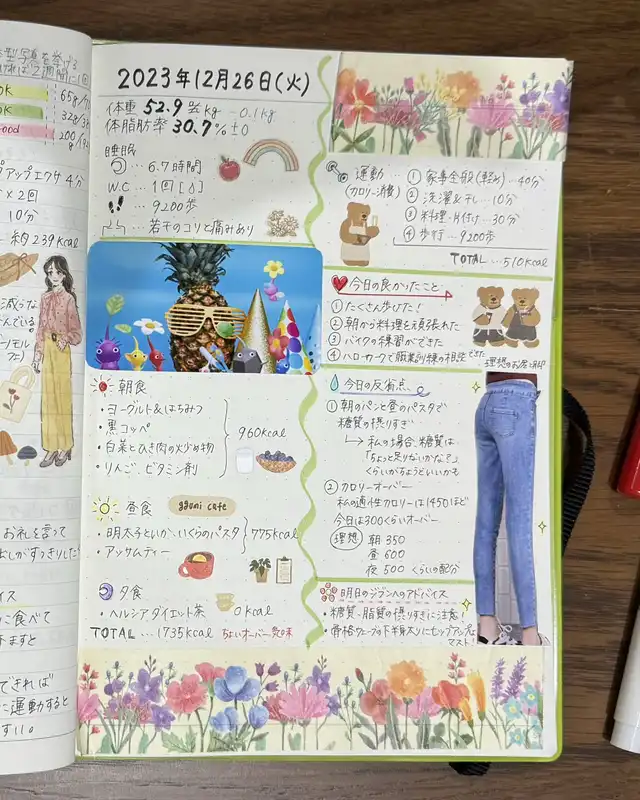 型写真を挙げる
2週間に1回
OK
65g
OK
32g
ood
200
アップエクサ 4分
×2回
10分
約239kcal
減らな
んでいる
お礼を言って
に食べて
ますと
できれば
に運動すると
2023年12月26日(火)
体重 52.9 kg -0.1kg
体脂肪率 30.7% ±0
睡眠
… 6.7時間
W.C … 1回
… 9200歩
… 若干のコリと痛みあり
朝食
・ヨーグルト&はちみつ
・黒コッペ
・白菜とひき肉の炒め物
・りんご、ビタミン剤
960kcal
昼食 ggumi cafe
・明太子といか、いくらのパスタ
・アッサムティー
775kcal
夕食
・ヘルシアダイエット茶 0kcal
TOTAL … 1735kcal ちょいオーバー気味
運動
(カロリー消費)
① 家事全般(軽め)…40分
② 洗濯&干し…10分
③ 料理・片付け…30分
④ 歩行…9200歩
TOTAL … 510kcal
今日の良かったこと
① たくさん歩けた!
② 朝から料理を頑張れた
③ バイクの練習ができた
④ ハローワークで職業訓練の相談できた
理想のお尻と脚
今日の反省点
① 朝のパンと昼のパスタで
糖質の摂りすぎ
↳ 私の場合、糖質は
「ちょっと足りないかな?」
くらいがちょうどいいかも
② カロリーオーバー
私の適性カロリーは1450ほど
今日は300くらいオーバー
理想 朝 350
昼 600
夜 500 くらいの配分
明日のジブンへのアドバイス
・糖質・脂質の摂りすぎに注意!
・骨格ウェーブの下半身太りにセップアップは
マスト!